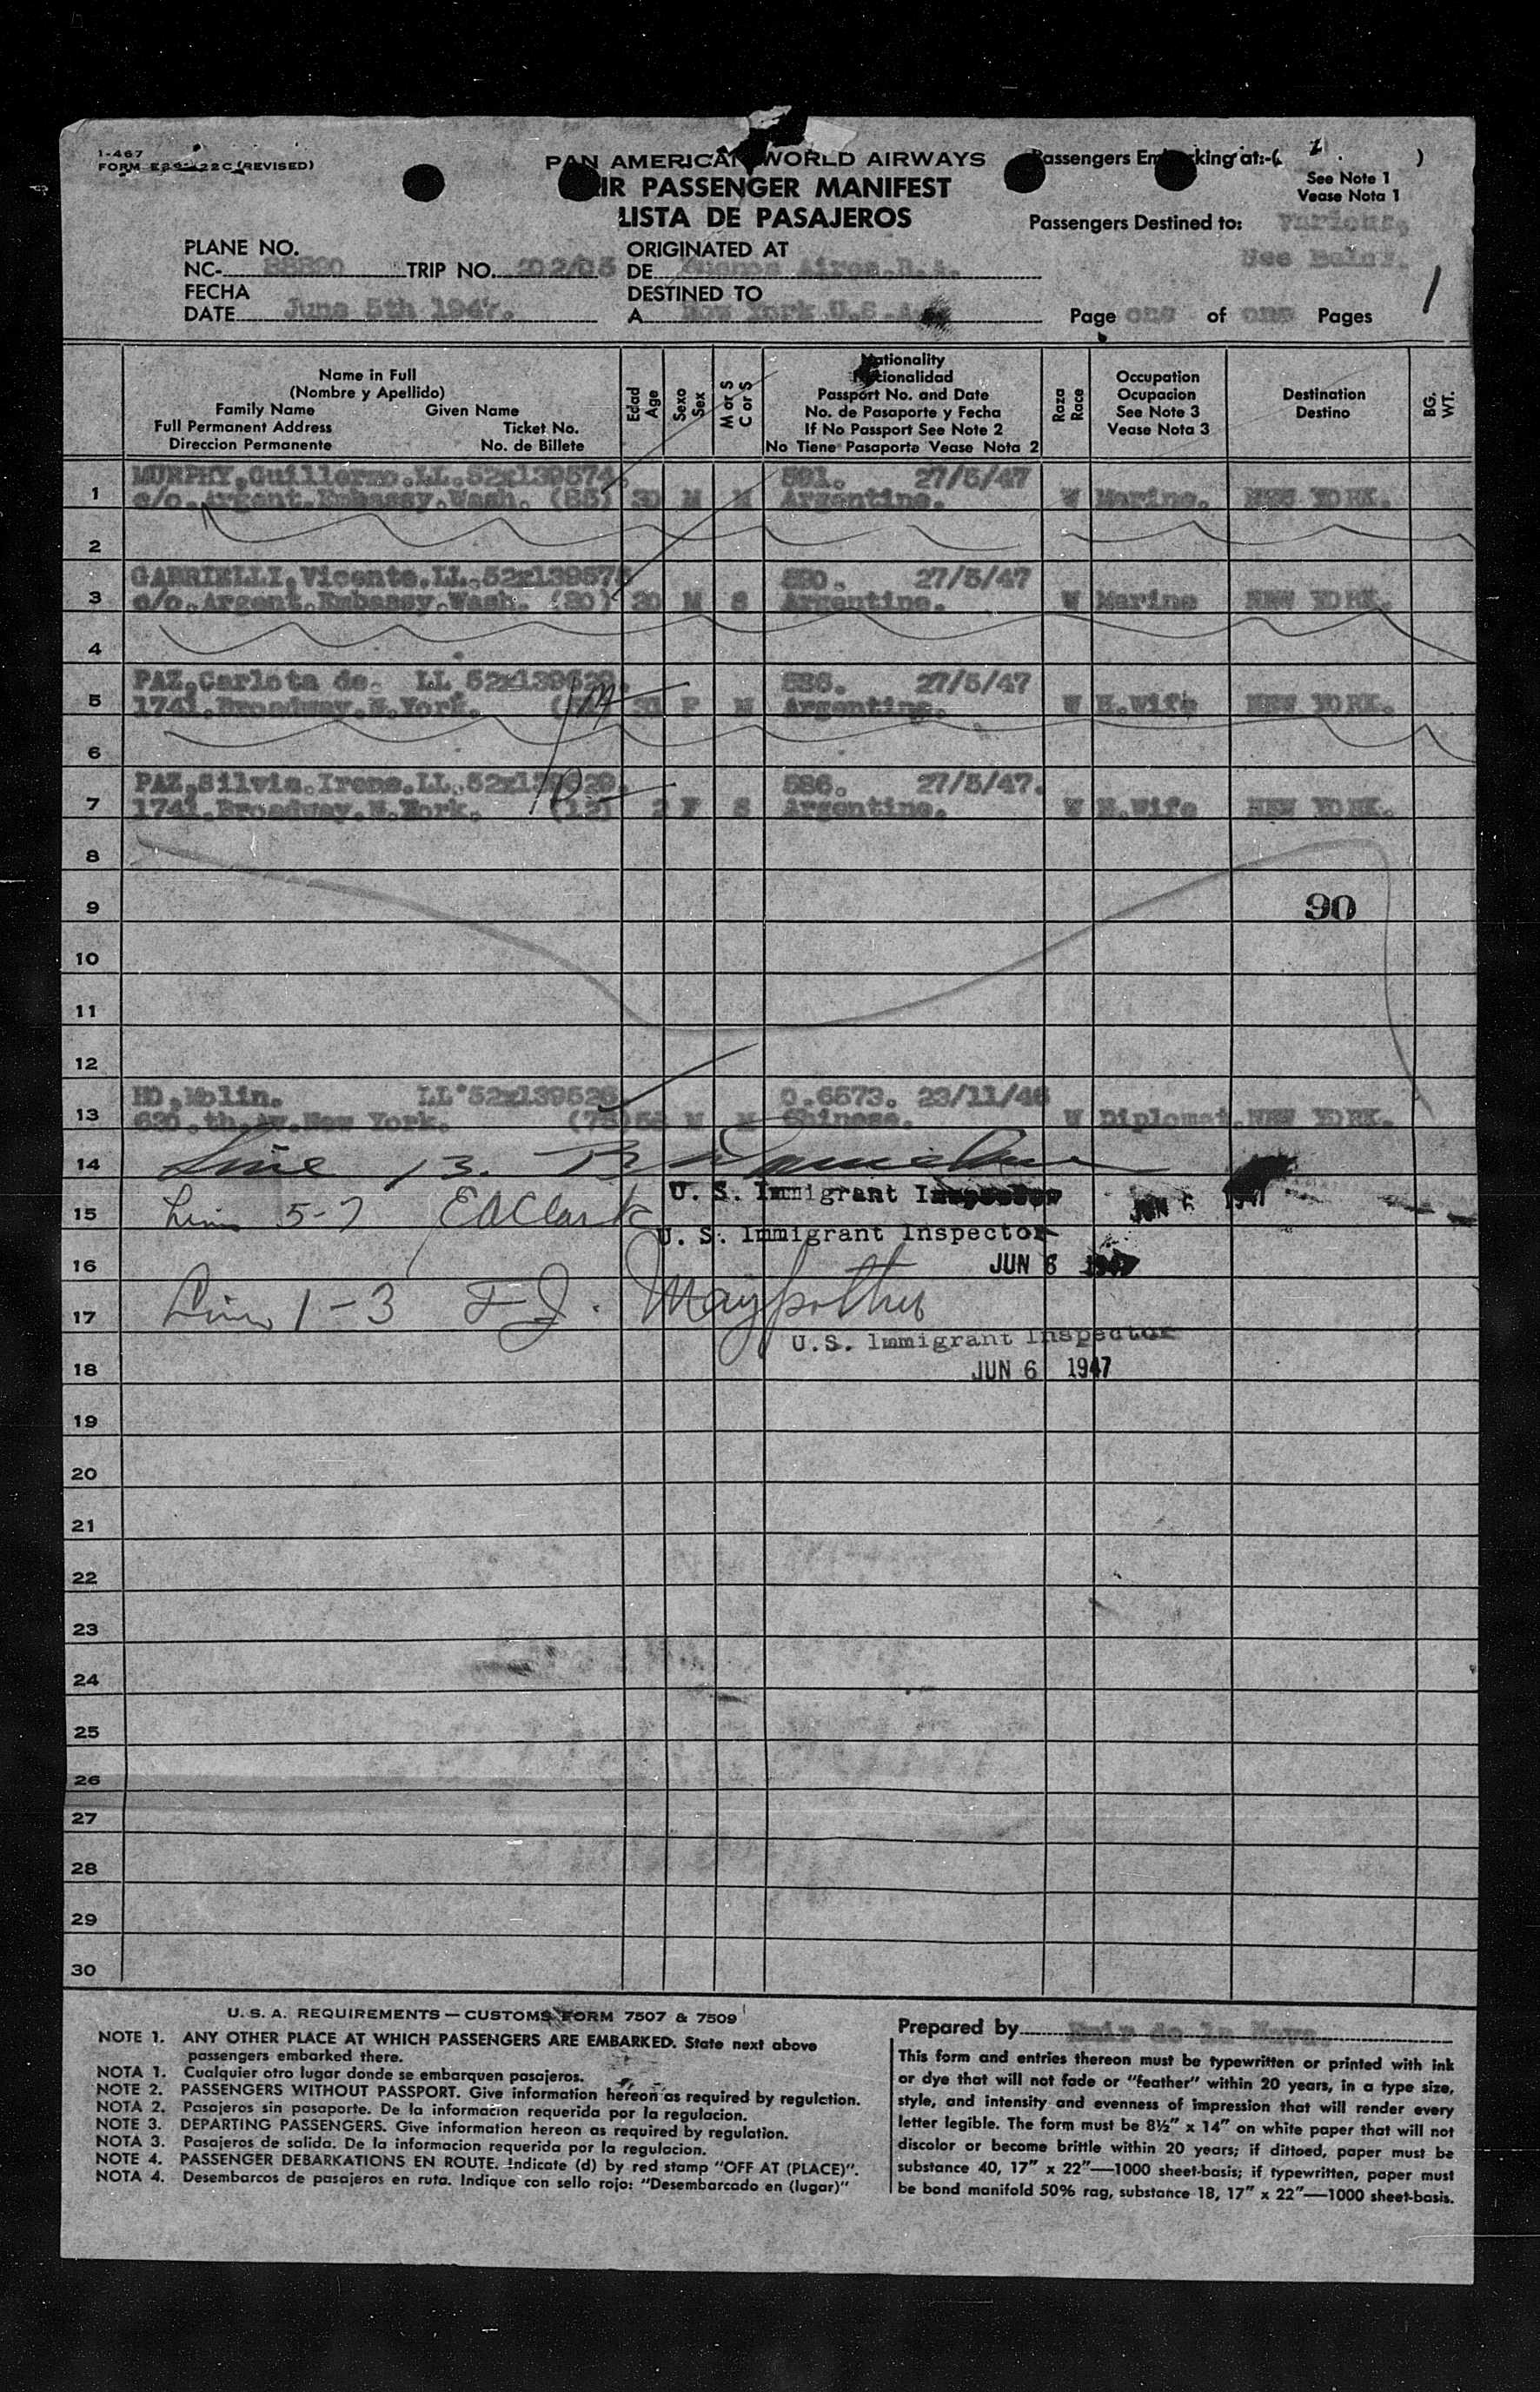 1-467
FORM (REVISED)
PAN AMERICAN WORLD AIRWAYS
AIR PASSENGER MANIFEST
LISTA DE PASAJEROS
Passengers Embarking at:-( )
See Note 1
Vease Nota 1
Passengers Destined to: Various,
See Below.
PLANE NO.
NC- TRIP NO. 202/05
FECHA
DATE June 5th 1947.
ORIGINATED AT
DE Buenos Aires.
DESTINED TO
A New York U.S.A.
Page one of one Pages
1
Name in Full
(Nombre y Apellido)
Family Name Given Name
Full Permanent Address Ticket No.
Direccion Permanente No. de Billete
Edad
Age
Sexo
Sex
M or S
C or S
Nationality
Nacionalidad
Passport No. and Date
No. de Pasaporte y Fecha
If No Passport See Note 2
No Tiene Pasaporte Vease Nota 2
Raza
Race
Occupation
Ocupacion
See Note 3
Vease Nota 3
Destination
Destino
BG.
WT.
MURPHY,Guillermo.LL.52x139574. 591. 27/5/47
1 c/o.Argent.Embassy.Wash. (85) 30 M M Argentine. W Marine. NEW YORK.
2
GABRIELLI,Vicente.LL.52x139575 590. 27/5/47
3 c/o.Argent.Embassy.Wash. (80) 30 M S Argentine. W Marine NEW YORK.
4
PAZ,Carlota de. LL.52x139629. 586. 27/5/47
5 1741.Broadway.N.York. 30 F M Argentine. W H.Wife NEW YORK.
6
PAZ,Silvia.Irene.LL.52x139629. 586. 27/5/47.
7 1741.Broadway.N.York. (12) 2 F S Argentine. W H.Wife NEW YORK.
8
9 90
10
11
12
HO,Molin. LL 52x139526. 0.6573. 23/11/46
13 630.th.Av.New York. (75) M M Chinese. W Diplomat.NEW YORK.
14 Line 13.
U. S. Immigrant Inspector JUN 6 1947
15 Lines 5-7 EAClark
U. S. Immigrant Inspector
16 JUN 6 1947
17 Lines 1-3 F J. Maypother
U.S. Immigrant Inspector
18 JUN 6 1947
19
20
21
22
23
24
25
26
27
28
29
30
U. S. A. REQUIREMENTS — CUSTOMS FORM 7507 & 7509
NOTE 1. ANY OTHER PLACE AT WHICH PASSENGERS ARE EMBARKED. State next above
passengers embarked there.
NOTA 1. Cualquier otro lugar donde se embarquen pasajeros.
NOTE 2. PASSENGERS WITHOUT PASSPORT. Give information hereon as required by regulction.
NOTA 2. Pasajeros sin pasaporte. De la informacion requerida por la regulacion.
NOTE 3. DEPARTING PASSENGERS. Give information hereon as required by regulation.
NOTA 3. Pasajeros de salida. De la informacion requerida por la regulacion.
NOTE 4. PASSENGER DEBARKATIONS EN ROUTE. Indicate (d) by red stamp "OFF AT (PLACE)".
NOTA 4. Desembarcos de pasajeros en ruta. Indique con sello rojo: "Desembarcado en (lugar)"
Prepared by de la
This form and entries thereon must be typewritten or printed with ink
or dye that will not fade or "feather" within 20 years, in a type size,
style, and intensity and evenness of impression that will render every
letter legible. The form must be 8½" x 14" on white paper that will not
discolor or become brittle within 20 years; if dittoed, paper must be
substance 40, 17" x 22"—1000 sheet-basis; if typewritten, paper must
be bond manifold 50% rag, substance 18, 17" x 22"—1000 sheet-basis.